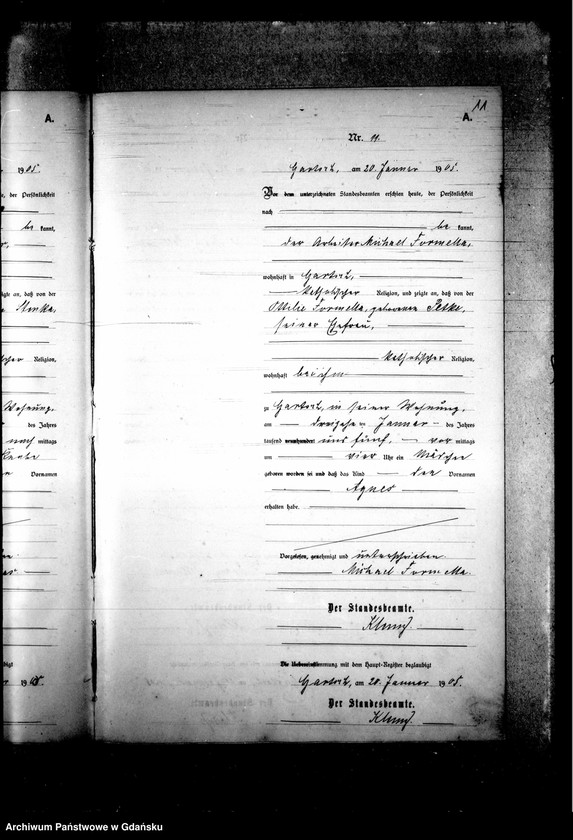 A.
1905.
te, der Persönlichkeit
be kannt,
zeigte an, daß von der
Religion,
Wohnung,
des Jahres
nach mittags
Vornamen
1905.
11
A.
Nr. 11.
am 20 Januar 1905.
Vor dem unterzeichneten Standesbeamten erschien heute, der Persönlichkeit
nach
be kannt,
der Arbeiter Michael Formella,
wohnhaft in
katholischer Religion, und zeigte an, daß von der
Ottilie Formella, geborenen Petke,
seiner Ehefrau,
katholischer Religion,
wohnhaft bei ihm
zu in seiner Wohnung,
am dreizehn Januar des Jahres
tausend neunhundert und fünf, vor mittags
um vier Uhr ein Mädchen
geboren worden sei und daß das Kind den Vornamen
Agnes
erhalten habe.
Vorgelesen, genehmigt und unterschrieben
Michael Formella.
Der Standesbeamte.
Die Uebereinstimmung mit dem Haupt-Register beglaubigt
am 20. Januar 1905.
Der Standesbeamte.
Archiwum Państwowe w Gdańsku